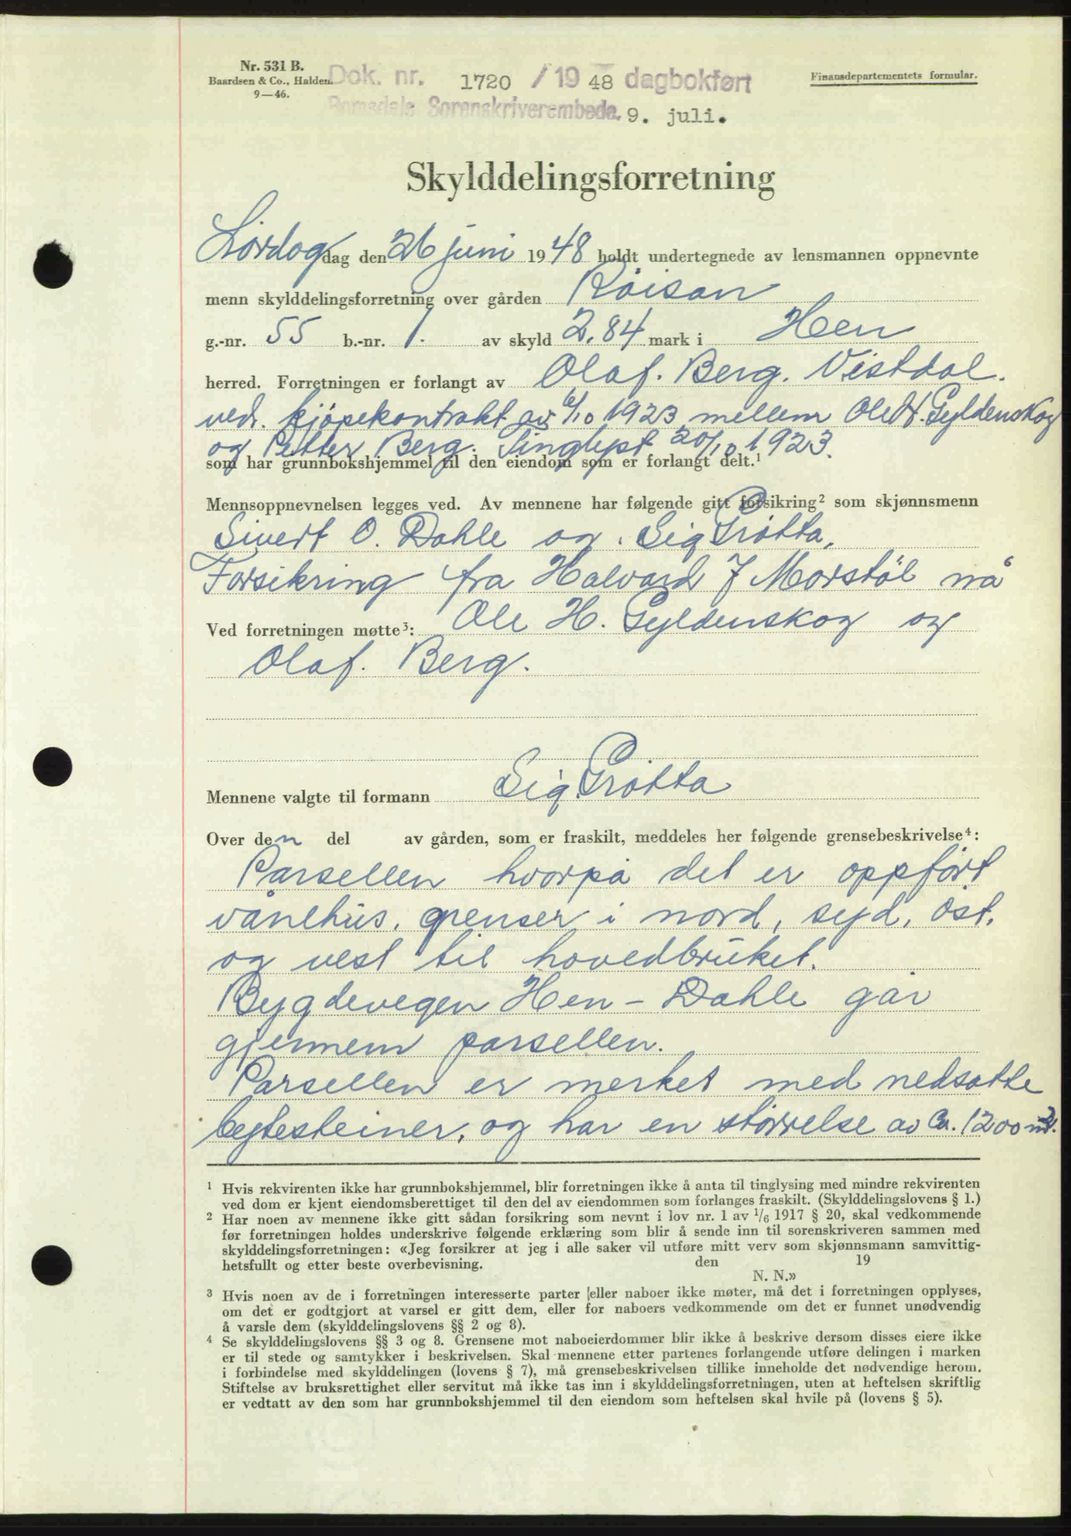 Nr. 531 B.
Baardsen & Co., Halden.
9—46.
Dok. nr. 1720 / 19 48 dagbokført
Romsdals Sorenskriverembede. 9. juli.
Finansdepartementets formular.
Skylddelingsforretning
Lørdag dag den 26 juni 1948 holdt undertegnede av lensmannen oppnevnte
menn skylddelingsforretning over gården Röisan
g.-nr. 55 b.-nr. 1. av skyld 2,84 mark i Hen
herred. Forretningen er forlangt av Olaf. Berg. Vistdal.
vedr. kjöpekontrakt av 6/10 1923 mellem Ole H. Gyldenskog
og Petter Berg. Tinglyst 20/10 1923.
som har grunnbokshjemmel til den eiendom som er forlangt delt.¹
Mennsoppnevnelsen legges ved. Av mennene har følgende gitt forsikring² som skjønnsmenn
Sivert O. Dahle og. Sig Grötta.
Forsikring fra Halvard J Morstöl nå
Ved forretningen møtte³: Ole H. Gyldenskog og
Olaf. Berg.
Mennene valgte til formann Sig. Grötta
Over den del av gården, som er fraskilt, meddeles her følgende grensebeskrivelse⁴:
Parsellen hvorpå det er oppfört
vånehus, grenser i nord, syd, öst,
og vest til hovedbruket.
Bygdevegen Hen – Dahle går
gjennem parsellen.
Parsellen er merket med nedsatte
bytesteiner, og har en störrelse av ca. 1200 m².
¹ Hvis rekvirenten ikke har grunnbokshjemmel, blir forretningen ikke å anta til tinglysing med mindre rekvirenten
ved dom er kjent eiendomsberettiget til den del av eiendommen som forlanges fraskilt. (Skylddelingslovens § 1.)
² Har noen av mennene ikke gitt sådan forsikring som nevnt i lov nr. 1 av 1/6 1917 § 20, skal vedkommende
før forretningen holdes underskrive følgende erklæring som blir å sende inn til sorenskriveren sammen med
skylddelingsforretningen: «Jeg forsikrer at jeg i alle saker vil utføre mitt verv som skjønnsmann samvittig-
hetsfullt og etter beste overbevisning. den 19
N. N.»
³ Hvis noen av de i forretningen interesserte parter eller naboer ikke møter, må det i forretningen opplyses,
om det er godtgjort at varsel er gitt dem, eller for naboers vedkommende om det er funnet unødvendig
å varsle dem (skylddelingslovens §§ 2 og 8).
⁴ Se skylddelingslovens §§ 3 og 8. Grensene mot naboeierdommer blir ikke å beskrive dersom disses eiere ikke
er til stede og samtykker i beskrivelsen. Skal mennene etter partenes forlangende utføre delingen i marken
i forbindelse med skylddelingen (lovens § 7), må grensebeskrivelsen tillike inneholde det nødvendige herom.
Stiftelse av bruksrettighet eller servitut må ikke tas inn i skylddelingsforretningen, uten at heftelsen skriftlig
er vedtatt av den som har grunnbokshjemmel til den eiendom som heftelsen skal hvile på (lovens § 5).